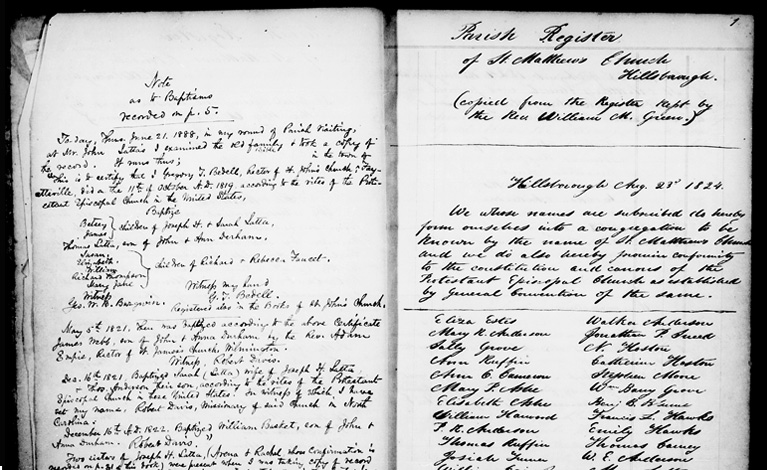 Note
as to Baptisms
recorded on p. 5.
To day, Thurs. June 21. 1888, in my round of Parish Visiting,
at Mr. John Latta's I examined the old family Bible & took a copy of
the record. It runs thus;
in the town of
This is to certify that I Gregory T. Bedell, Rector of St. John's Church, Fay-
etteville, did on the 11th of October A.D. 1819, according to the rites of the Prot-
estant Episcopal Church in the United States,
Baptize
Betsey
James
children of Joseph H. & Sarah Latta,
Thomas Latta, son of John & Ann Derham.
Susan
Elizabeth
William
Richard Thompson
Mary Jane
children of Richard & Rebecca Faucet.
Witness my hand
G. T. Bedell.
Witness
Geo. W. H.
Registered also in the Books of St John's Church.
May 5th 1821. Then was Baptized according to the above Certificate
James Webb, son of John & Anna Durham, by the Rev. Adam
Empie, Rector of St James's Church, Wilmington.
Witness, Robert Davis.
Dec. 16th 1821, Baptized Sarah (Latta) wife of Joseph H. Latta
& Thos. Anderson their son, according to the rites of the Protestant
Episcopal Church in these United States. In witness of which, I have
set my name. Robert Davis, Missionary of said Church in North
Carolina.
December 16th A.D. 1822. Baptized William Basket, son of John &
Anna Durham. Robert Davis."
Two sisters of Joseph H. Latta, (Arena & Rachel whose Confirmation is
recorded on p. 31 of this book) were present when I was taking copy of record
1
Parish Register
of St. Matthews Church
Hillsborough.
(copied from the Register kept by
the Rev. William M. Green.)
Hillsborough Aug. 23d 1824.
We whose names are subscribed do hereby
form ourselves into a congregation to be
known by the name of St. Matthews Church
and we do also hereby promise conformity
to the constitution and canons of the
Protestant Episcopal Church as established
by general Convention of the same.
Eliza Estes Walker Anderson
Mary R. Anderson Jonathan P. Sneed
Sally Grove N. Hooton
Ann Ruffin Catherine Hooton
Ann C. Cameron Stephen Moore
Mary P. Wm. Barry Grove
Elizabeth
William Francis L. Hawks
P. K. Anderson Emily Hawks
Thomas Ruffin Thomas Carney
Josiah Turner W. E. Anderson